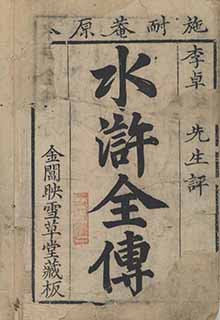 施耐菴原本
李卓
先生評
水滸全傳
金閶映雪草堂藏板